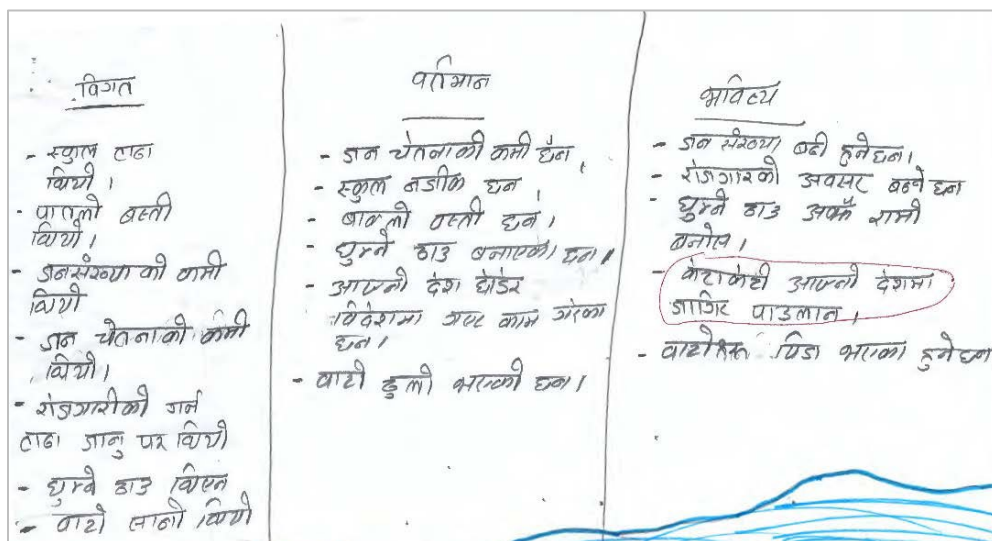 विगत
- स्कुल टाढा
थियो ।
- पातलो बस्ती
थियो ।
- जनसंख्या को कमी
थियो
- जन चेतनाको कमी
थियो ।
- रोजगारीको गर्न
टाढा जानु पर थियो
- घुम्ने ठाउ थिएन
- वाटो सानो थियो
वर्तमान
- जन चेतनाको कमी छैन
- स्कुल नजीक छन ।
- बाक्लो वस्ती छन ।
- घुम्ने ठाउ बनाएका छन ।
- आफ्नो देश छोडेर
विदेशमा गएर काम गरेका
छन ।
- वाटो ठुलो भएको छन ।
भविष्य
- जन संख्या बढी हुनेछन ।
- रोजगारको अवसर बढ्ने छन
- घुम्ने ठाउ अझै राम्रो
बनोस ।
- केटाकेटी आफ्नो देशमा
जागिर पाउलान ।
- वाटोहरू पिडा भएका हुनेछन